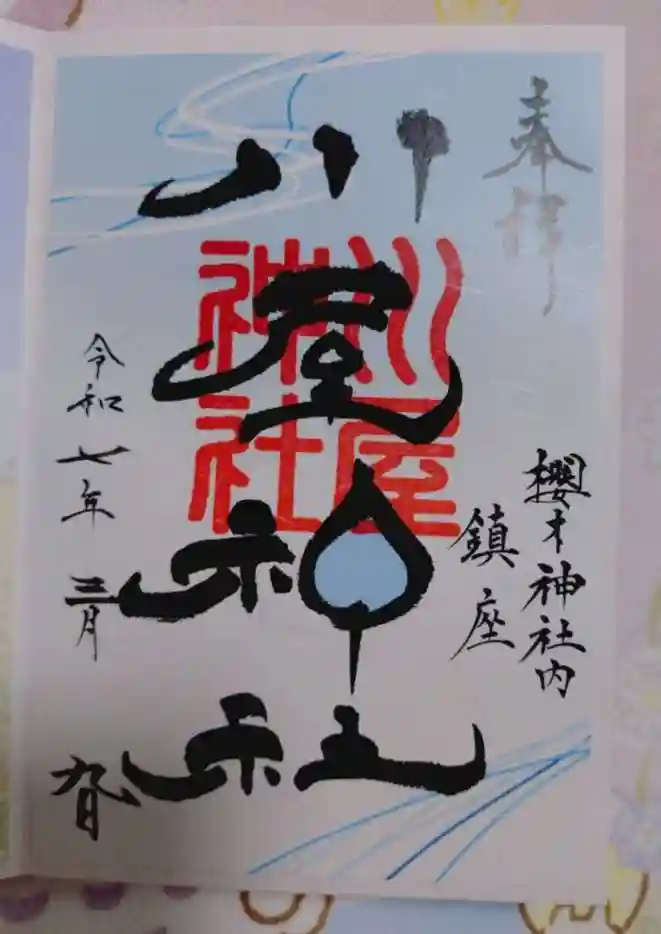 奉拝
櫻木神社内
鎮座
川屋神社
川屋神社
令和七年 三月
九日